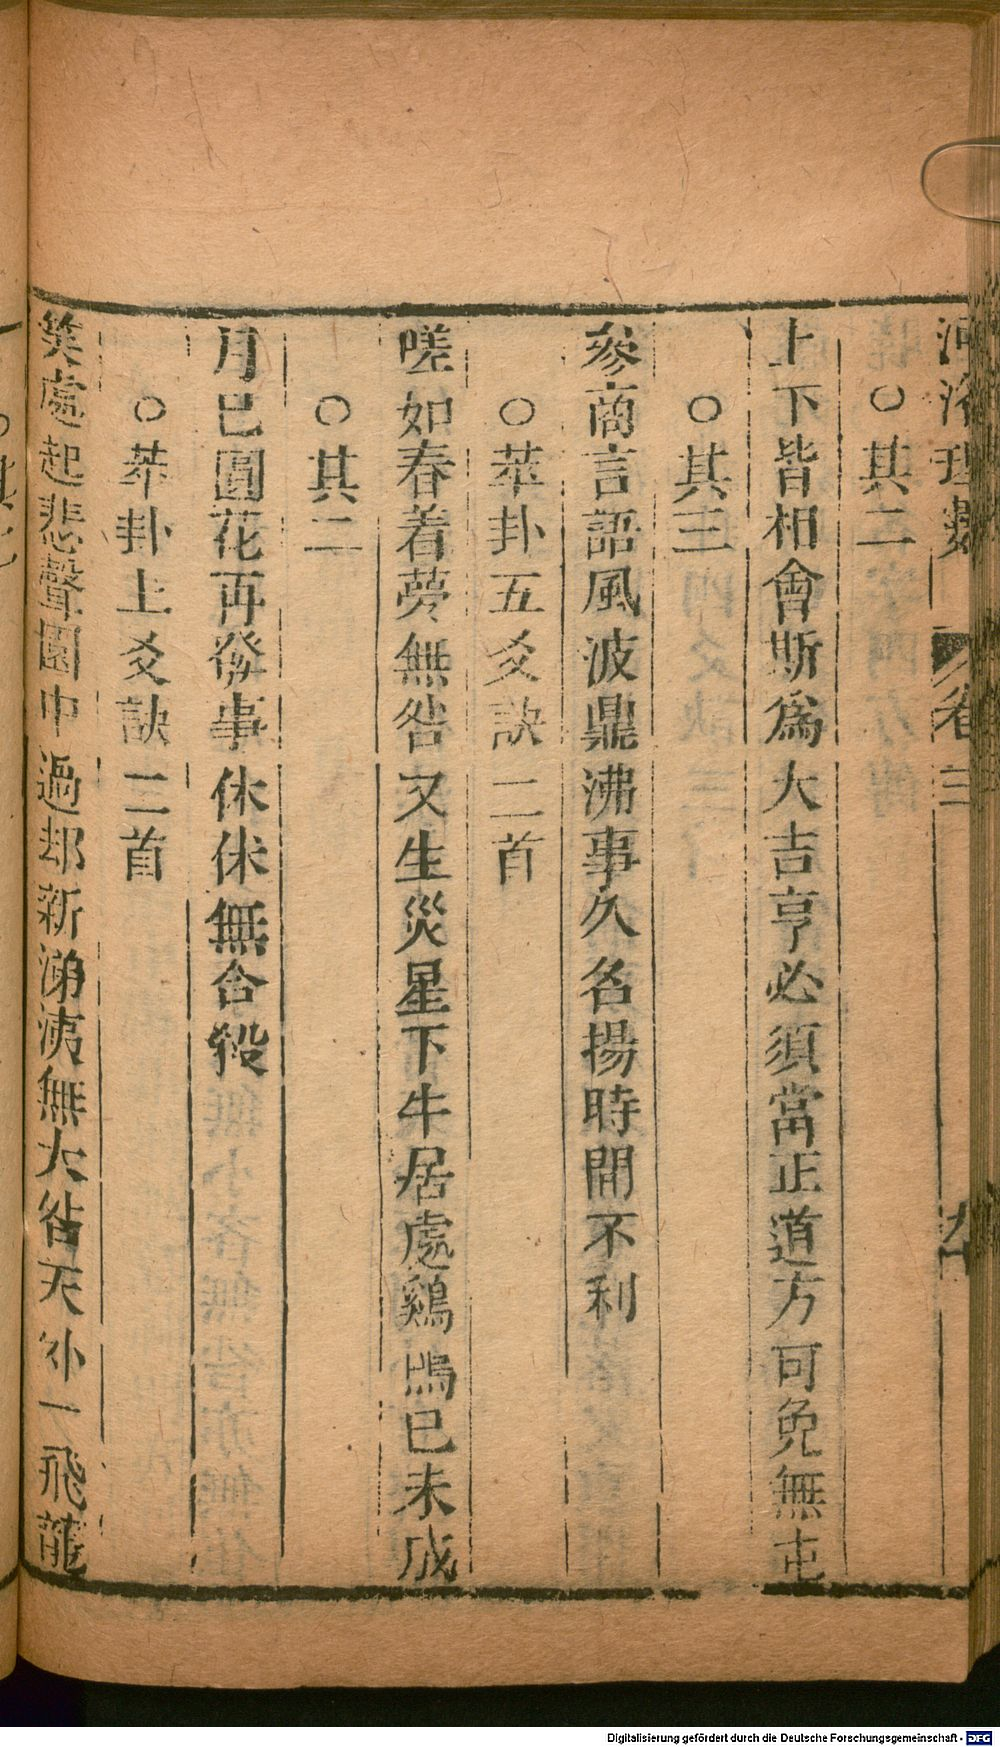 河洛理數 卷三
○其二
上下皆相會斯爲大吉亨必須當正道方可免無屯
○其三
參商言語風波鼎沸事久名揚時間不利
○萃卦五爻訣 二首
嗟如春着夢無咎又生災星下牛居處鷄鳴巳未成
○其二
月已圓花再發事休休無合殺
○萃卦上爻訣 二首
笑處起悲聲園中過却新涕洟無大咎天外一飛龍
Digitalisierung gefördert durch die Deutsche Forschungsgemeinschaft - DFG